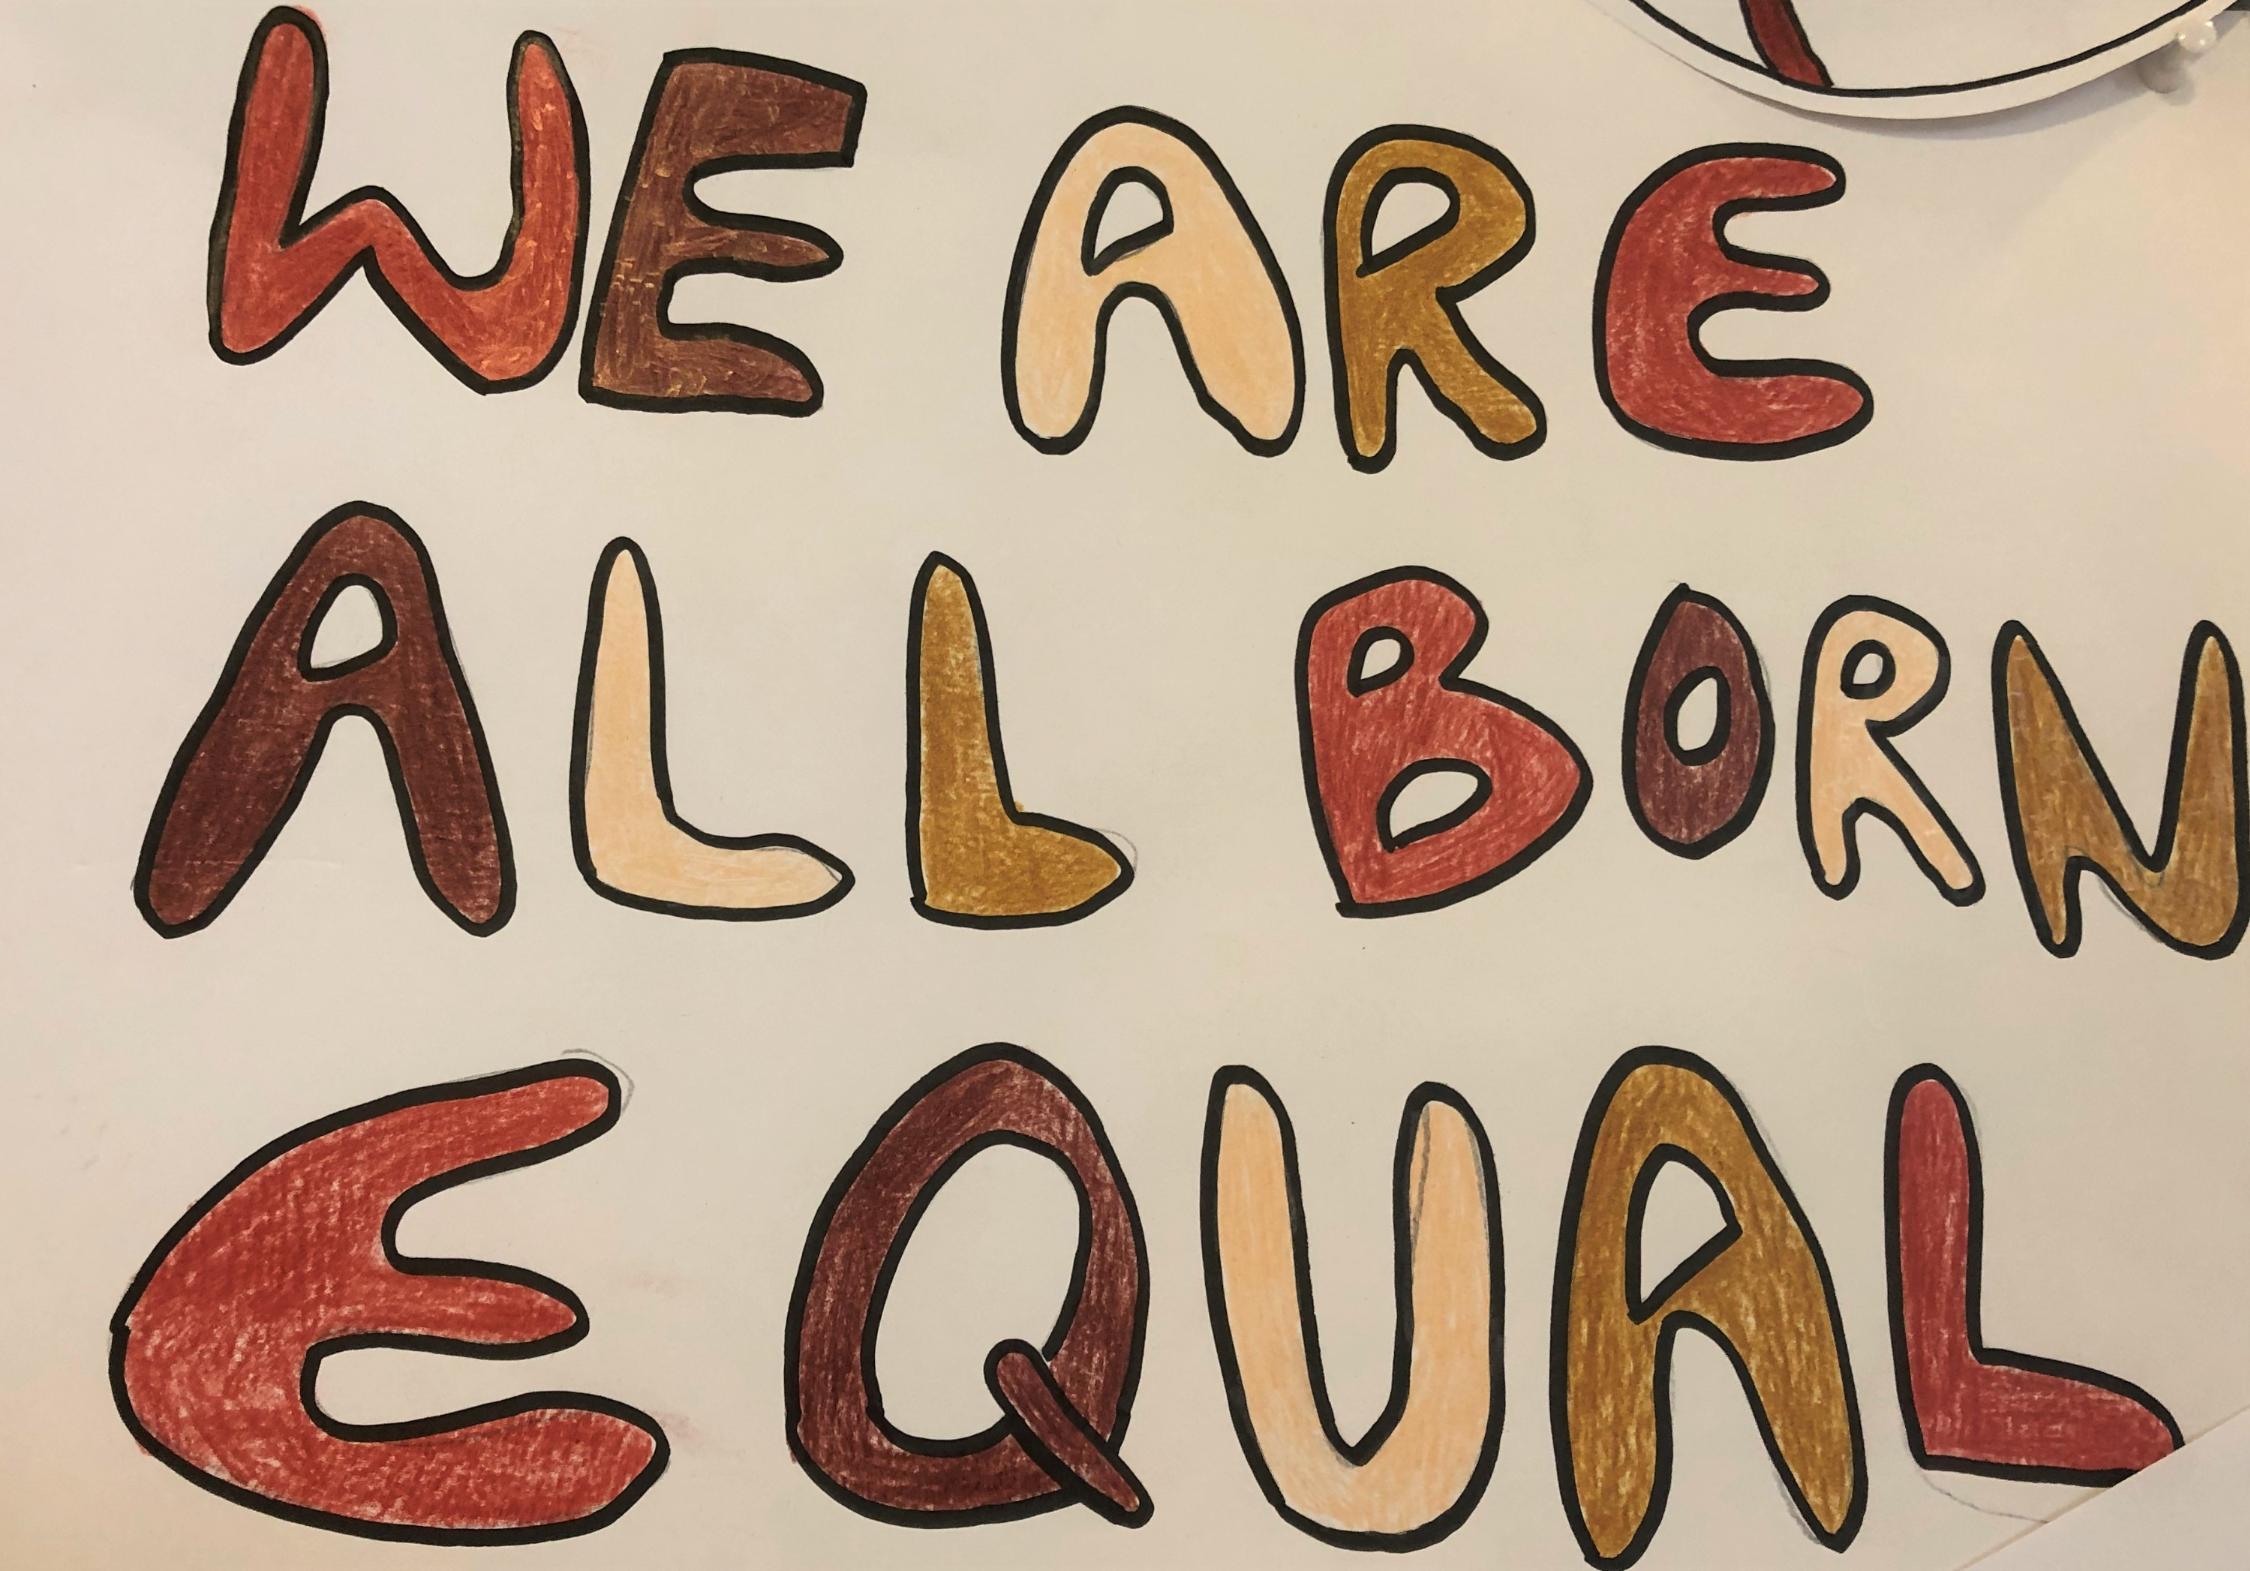 WE ARE
ALL BORN
EQUAL